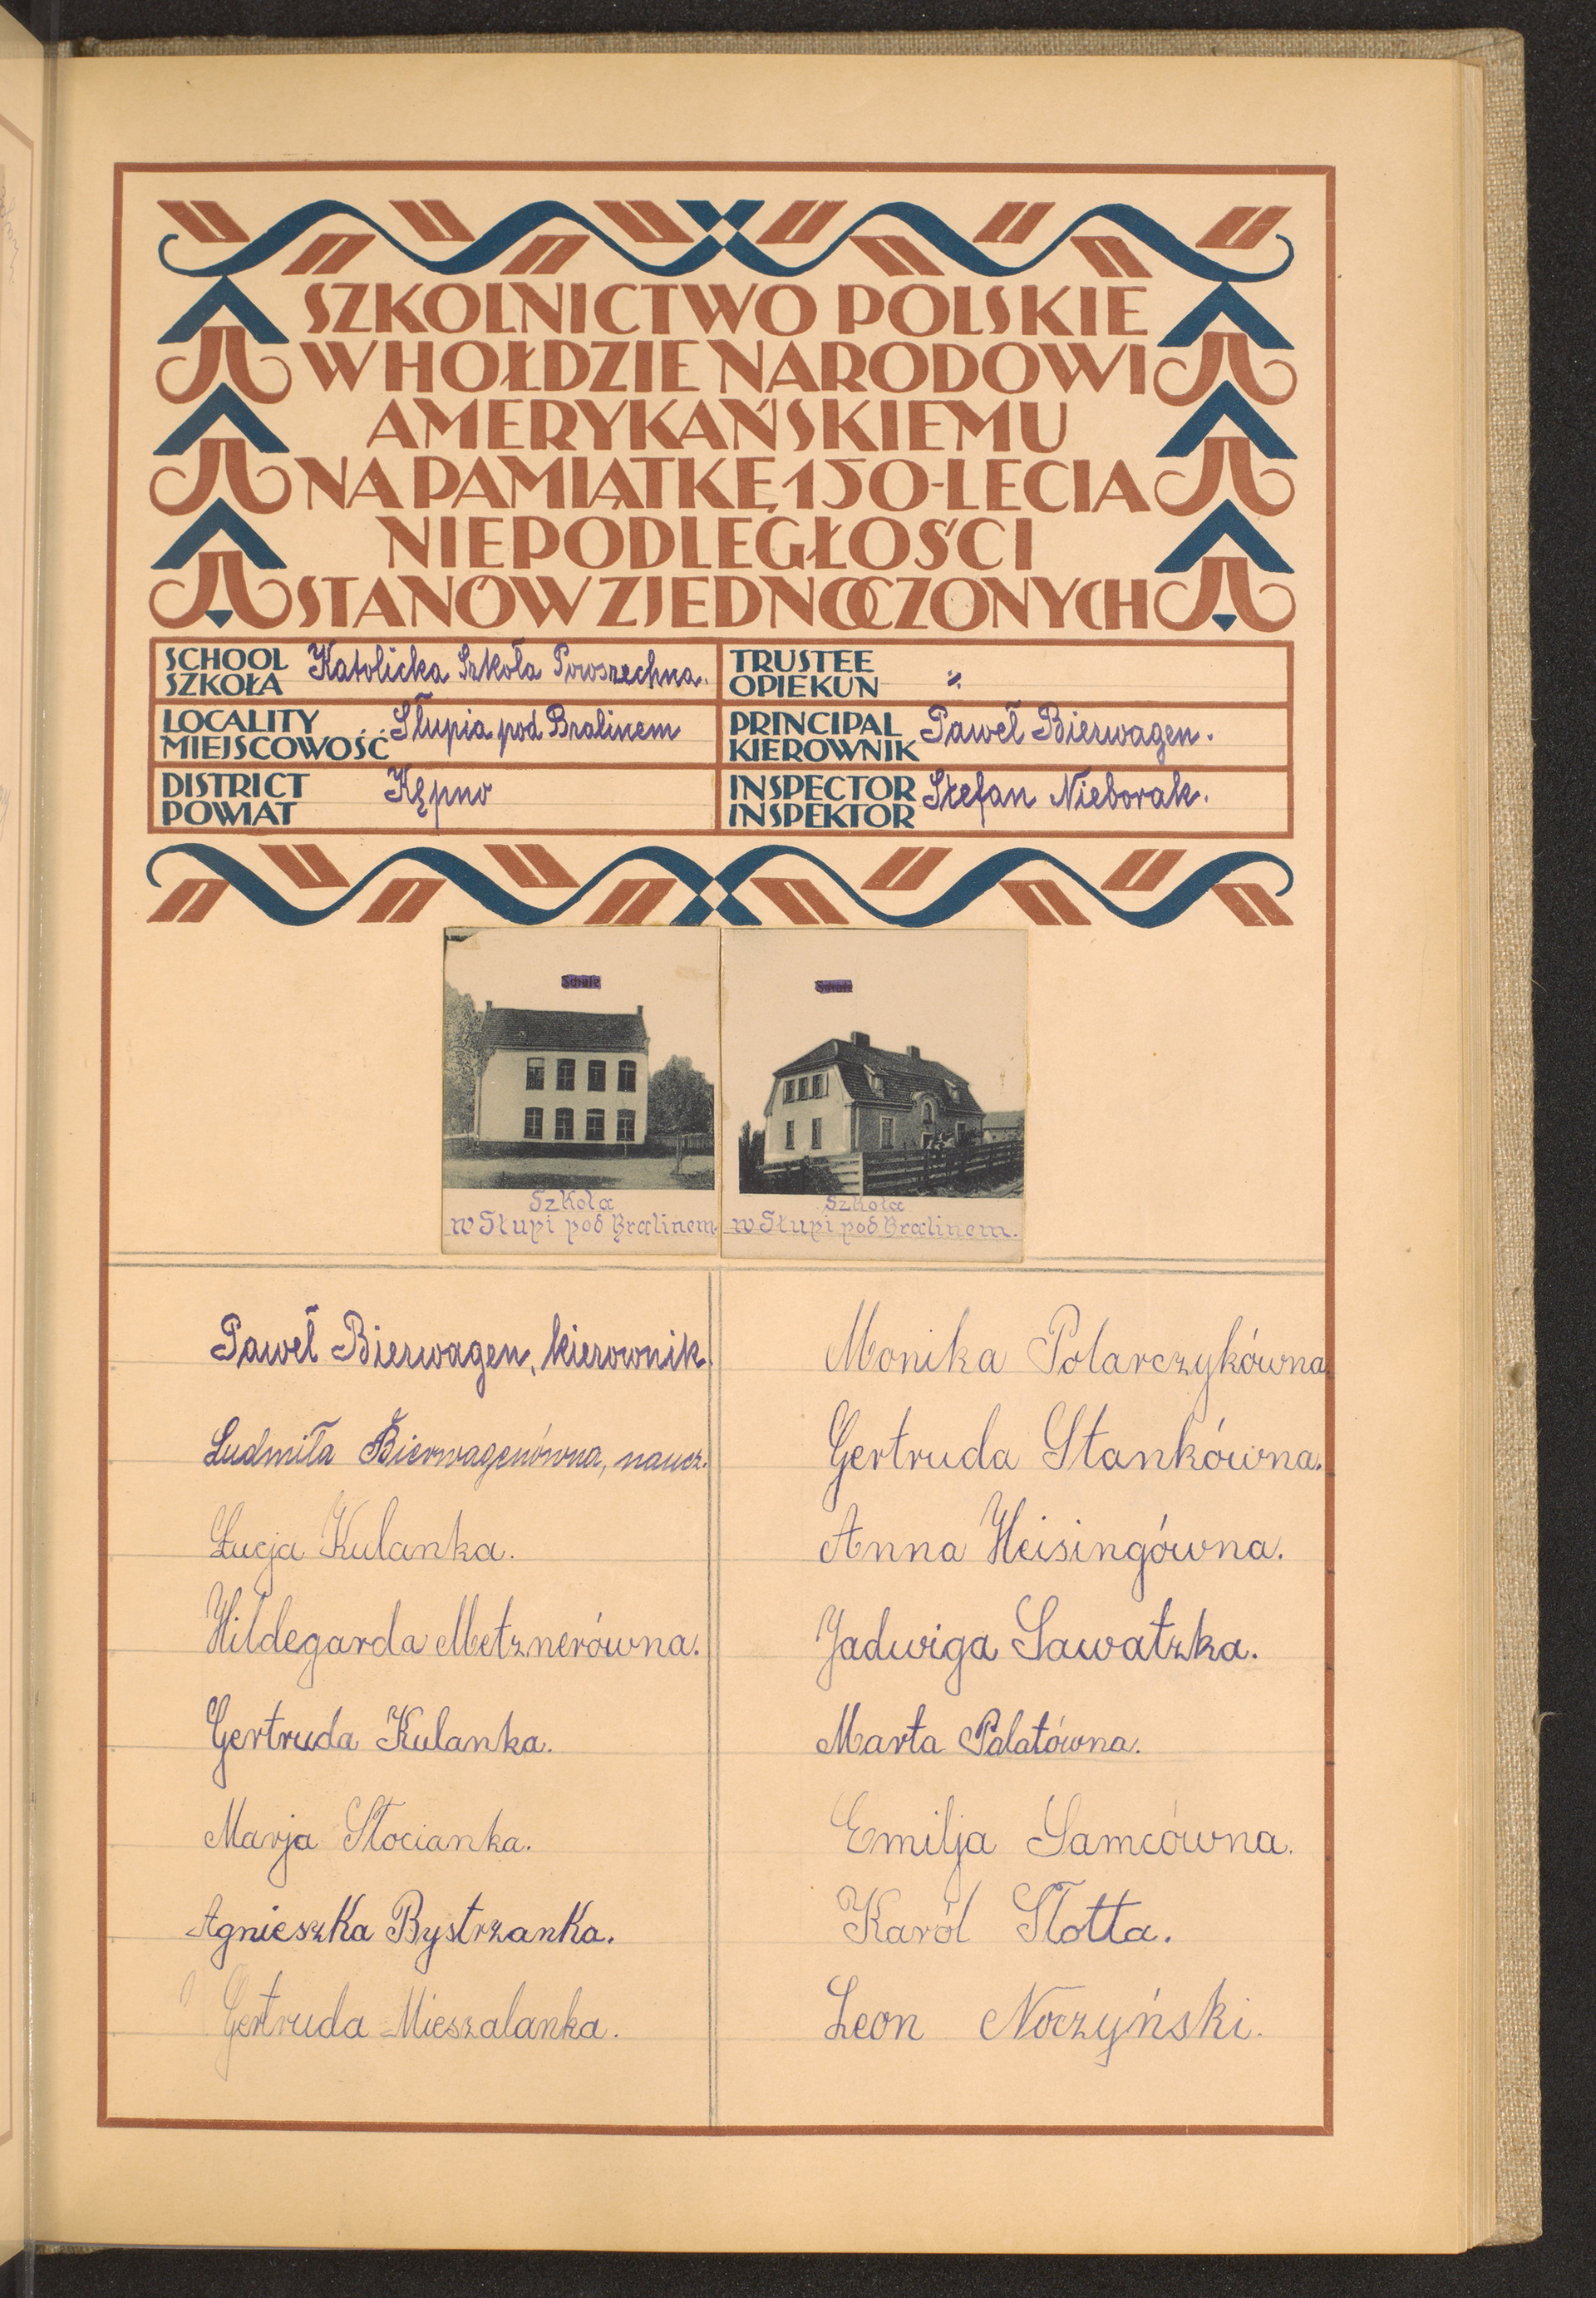 SZKOLNICTWO POLSKIE
W HOŁDZIE NARODOWI
AMERYKAŃSKIEMU
NA PAMIĄTKĘ 150-LECIA
NIEPODLEGŁOŚCI
STANÓW ZJEDNOCZONYCH
SCHOOL
SZKOŁA
Katolicka Szkoła Powszechna.
TRUSTEE
OPIEKUN
"
LOCALITY
MIEJSCOWOŚĆ
Słupia pod Bralinem
PRINCIPAL
KIEROWNIK
Paweł Bierwagen.
DISTRICT
POWIAT
Kępno
INSPECTOR
INSPEKTOR
Stefan Nieborak.
Schule
Schule
Szkoła
w Słupi pod Bralinem.
Szkoła
w Słupi pod Bralinem.
Paweł Bierwagen, kierownik.
Ludmiła Bierwagenówna, naucz.
Łucja Kulanka.
Hildegarda Metznerówna.
Gertruda Kulanka.
Marja Słocianka.
Agnieszka Bystrzanka.
Gertruda Mieszalanka.
Monika Polarczykówna.
Gertruda Stankówna.
Anna Heisingówna.
Jadwiga Sawatzka.
Marta Palatówna.
Emilja Samcówna.
Karól Slotta.
Leon Noczyński.